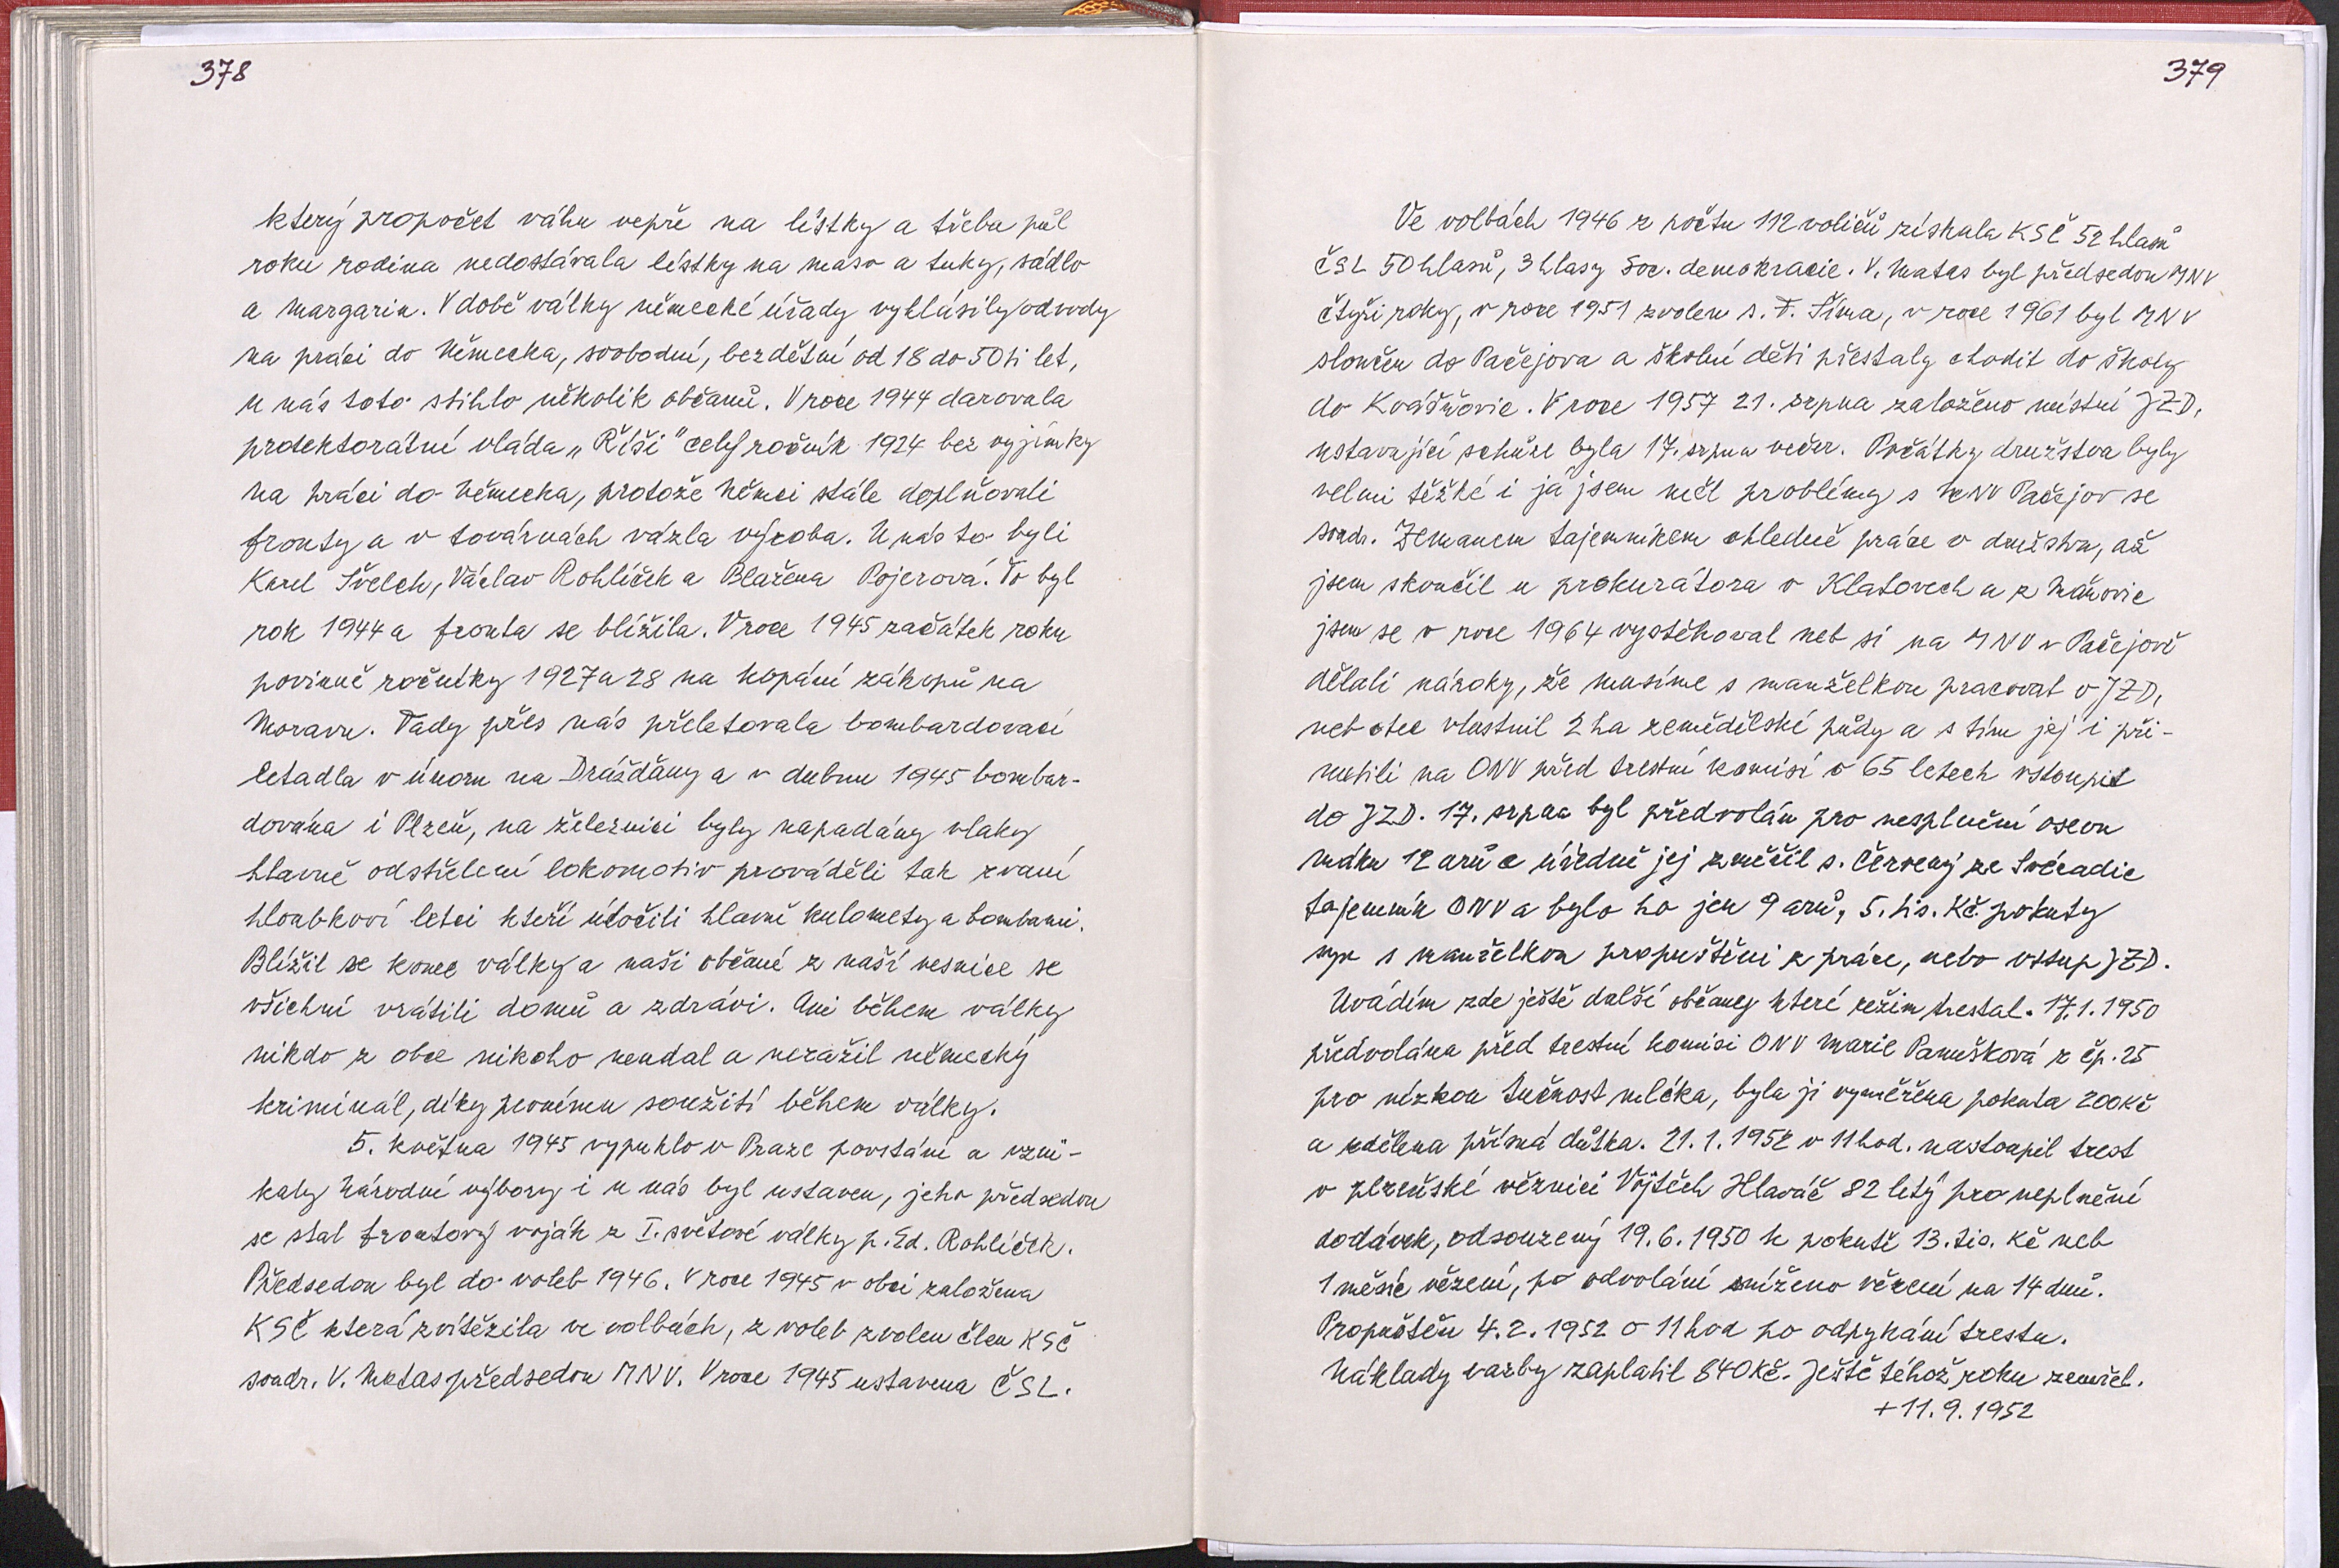 378
který propočet váhu vepře na lístky a třeba půl
roku rodina nedostávala lístky na maso a tuky, sádlo
a margarin. V době války německé úřady vyhlásily odvody
na práci do Německa, svobodní, bezdětní od 18 do 50ti let,
u nás toto stihlo několik občanů. V roce 1944 darovala
protektorátní vláda „Říši" celý ročník 1924 bez vyjímky
na práci do Německa, protože Němci stále doplňovali
fronty a v továrnách vázla výroba. U nás to byli
Karel Švelch, Václav Rohlíček a Blažena Pojerová. To byl
rok 1944 a fronta se blížila. V roce 1945 začátek roku
povinně ročníky 1927 a 28 na kopání zákopů na
Moravu. Tady přes nás přeletovala bombardovací
letadla v únoru na Drážďany a v dubnu 1945 bombar-
dována i Plzeň, na železnici byly napadány vlaky
hlavně odstřelení lokomotiv prováděli tak zvaní
hloubkoví letci kteří útočili hlavně kulomety a bombami.
Blížil se konec války a naši občané z naší vesnice se
všichni vrátili domů a zdrávi. Ani během války
nikdo z obce nikoho neudal a nezažil německý
kriminál, díky pevnému soužití během války.
5. května 1945 vypuklo v Praze povstání a vzni-
kaly Národní výbory i u nás byl ustaven, jeho předsedou
se stal frontový voják z I. světové války p. Ed. Rohlíček.
Předsedou byl do voleb 1946. V roce 1945 v obci založena
KSČ která zvítězila ve volbách, z voleb zvolen člen KSČ
soudr. V. Matas předsedou MNV. V roce 1945 ustavena ČSL.
379
Ve volbách 1946 z počtu 112 voličů získala KSČ 52 hlasů
ČSL 50 hlasů, 3 hlasy Soc. demokracie. V. Matas byl předsedou MNV
čtyři roky, v roce 1951 zvolen s. F. Šíma, v roce 1961 byl MNV
sloučen do Pačejova a školní děti přestaly chodit do školy
do Kvášňovic. V roce 1957 21. srpna založeno místní JZD,
ustavující schůze byla 17. srpna večer. Počátky družstva byly
velmi těžké i já jsem měl problémy s MNV Pačejov se
soudr. Zemanem tajemníkem ohledně práce v družstvu, až
jsem skončil u prokurátora v Klatovech a z Maňovic
jsem se v roce 1964 vystěhoval neb si na MNV v Pačejově
dělali nároky, že musíme s manželkou pracovat v JZD,
neb otec vlastnil 2 ha zemědělské půdy a s tím jej i při-
nutili na ONV před trestní komisí v 65 letech vstoupit
do JZD. 17. srpna byl předvolán pro nesplnění osevu
máku 12 arů a úředně jej změřil s. Červený ze Svéradic
tajemník ONV a bylo ho jen 9 arů, 5. tis. Kč pokuty
syn s manželkou propuštěni z práce, nebo vstup JZD.
Uvádím zde ještě další občany které režim trestal. 17.1.1950
předvolána před trestní komisi ONV Marie Panušková z čp. 25
pro nízkou tučnost mléka, byla ji vyměřena pokuta 200 Kč
a udělena přísná důtka. 21.1.1952 v 11 hod. nastoupil trest
v plzeňské věznici Vojtěch Hlaváč 82 letý pro neplnění
dodávek, odsouzený 19.6.1950 k pokutě 13. tis. Kč neb
1 měsíc vězení, po odvolání sníženo vězení na 14 dnů.
Propuštěn 4.2.1952 v 11 hod po odpykání trestu.
Náklady vazby zaplatil 840 Kč. Ještě téhož roku zemřel.
+ 11.9.1952